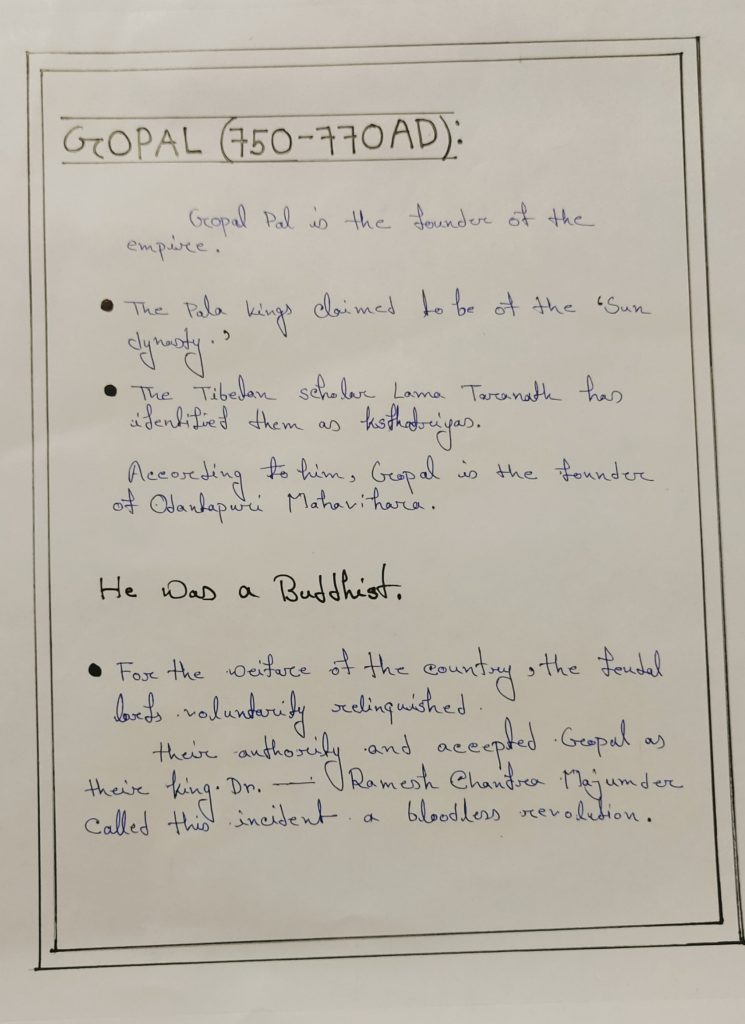 GOPAL (750-770AD):
Gopal Pal is the founder of the
empire.
• The Pala kings claimed to be of the 'Sun
dynasty.'
• The Tibetan scholar Lama Taranath has
identified them as ksthatriyas.
According to him, Gopal is the founder
of Odantapuri Mahavihara.
He was a Buddhist.
• For the welfare of the country, the feudal
lords voluntarity relinquished.
their authority and accepted Gopal as
their king. Dr. — Ramesh Chandra Majumder
Called this incident a bloodless revolution.